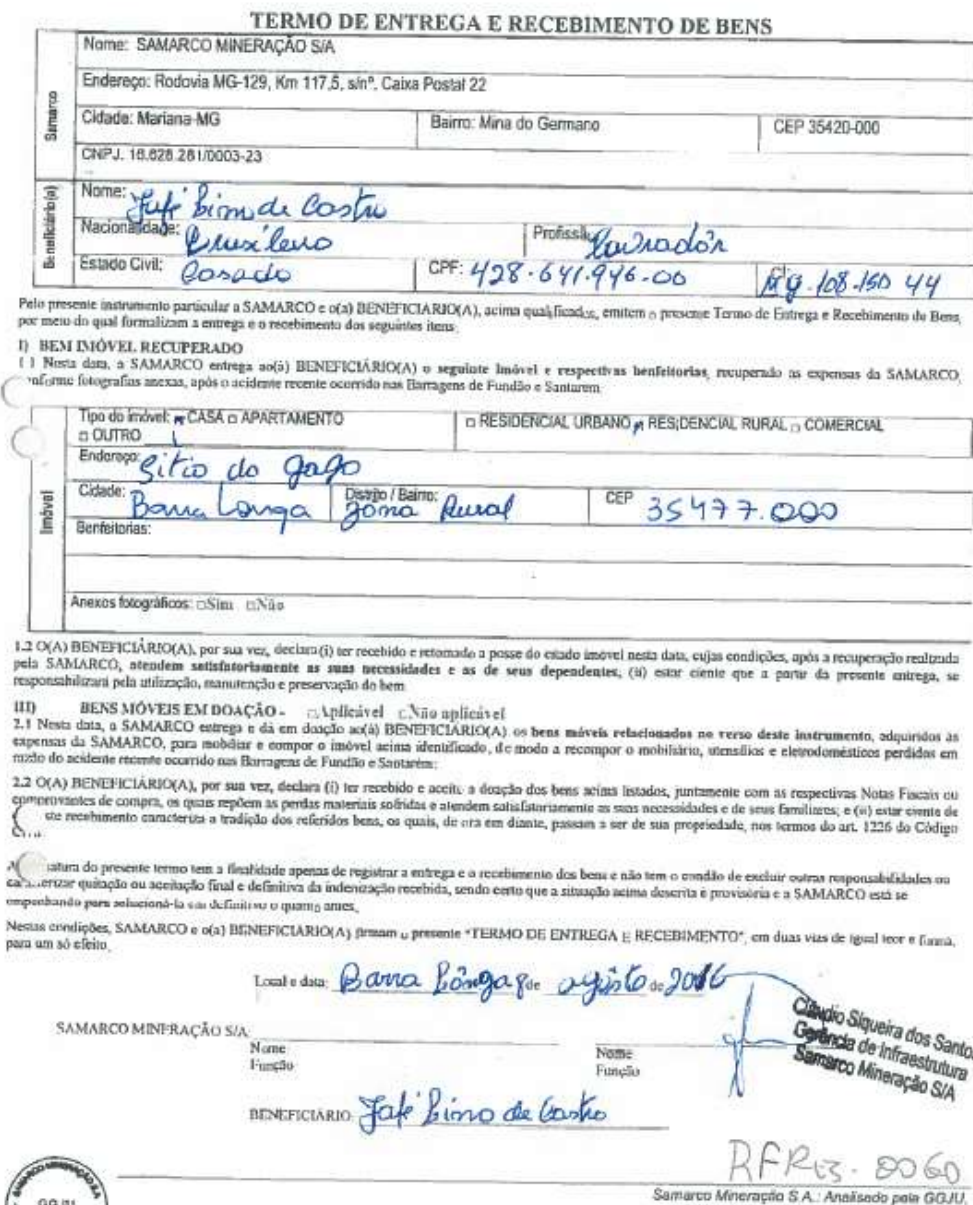 TERMO DE ENTREGA E RECEBIMENTO DE BENS
Samarco
Nome: SAMARCO MINERAÇÃO S/A
Endereço: Rodovia MG-129, Km 117,5, s/nº. Caixa Postal 22
Cidade: Mariana-MG Bairro: Mina do Germano CEP 35420-000
CNPJ. 16.628.281/0003-23
Beneficiário(a)
Nome: de Castro
Nacionalidade: Brasileiro Profissão: Lavradôr
Estado Civil: Casado CPF: 428.641.946-00 Mg.108.150 44
Pelo presente instrumento particular a SAMARCO e o(a) BENEFICIÁRIO(A), acima qualificados, emitem o presente Termo de Entrega e Recebimento de Bens,
por meio do qual formalizam a entrega e o recebimento dos seguintes itens:
I) BEM IMÓVEL RECUPERADO
Nesta data, a SAMARCO entrega ao(à) BENEFICIÁRIO(A) o seguinte imóvel e respectivas benfeitorias, recuperado às expensas da SAMARCO,
conforme fotografias anexas, após o acidente recente ocorrido nas Barragens de Fundão e Santarém.
Imóvel
Tipo do imóvel: CASA □ APARTAMENTO □ RESIDENCIAL URBANO RESIDENCIAL RURAL □ COMERCIAL
□ OUTRO
Endereço: Sitio do Gago
Cidade: Barra Longa Distrito / Bairro: Zona Rural CEP 35477.000
Benfeitorias:
Anexos fotográficos: □Sim □Não
1.2 O(A) BENEFICIÁRIO(A), por sua vez, declara (i) ter recebido e retomado a posse do citado imóvel nesta data, cujas condições, após a recuperação realizada
pela SAMARCO, atendem satisfatoriamente as suas necessidades e as de seus dependentes, (ii) estar ciente que a partir da presente entrega, se
responsabilizará pela utilização, manutenção e preservação do bem.
III) BENS MÓVEIS EM DOAÇÃO - □Aplicável □Não aplicável
2.1 Nesta data, a SAMARCO entrega e dá em doação ao(à) BENEFICIÁRIO(A) os bens móveis relacionados no verso deste instrumento, adquiridos às
expensas da SAMARCO, para mobiliar e compor o imóvel acima identificado, de modo a recompor o mobiliário, utensílios e eletrodomésticos perdidos em
razão do acidente recente ocorrido nas Barragens de Fundão e Santarém:
2.2 O(A) BENEFICIÁRIO(A), por sua vez, declara (i) ter recebido e aceito a doação dos bens acima listados, juntamente com as respectivas Notas Fiscais ou
comprovantes de compra, os quais repõem as perdas materiais sofridas e atendem satisfatoriamente as suas necessidades e de seus familiares; e (ii) estar ciente de
ste recebimento caracteriza a tradição dos referidos bens, os quais, de ora em diante, passam a ser de sua propriedade, nos termos do art. 1226 do Código
atura do presente termo tem a finalidade apenas de registrar a entrega e o recebimento dos bens e não tem o condão de excluir outras responsabilidades ou
caracterizar quitação ou aceitação final e definitiva da indenização recebida, sendo certo que a situação acima descrita é provisória e a SAMARCO está se
empenhando para solucioná-la em definitivo o quanto antes.
Nestas condições, SAMARCO e o(a) BENEFICIÁRIO(A) firmam o presente "TERMO DE ENTREGA E RECEBIMENTO", em duas vias de igual teor e forma,
para um só efeito.
Local e data: Barra Lônga 8 de agôsto de 2016
Cláudio Siqueira dos Santos
Gerência de Infraestrutura
Samarco Mineração S/A
SAMARCO MINERAÇÃO S/A
Nome Nome
Função Função
BENEFICIÁRIO: de Castro
0060
Samarco Mineração S.A.: Analisado pela GGJU.